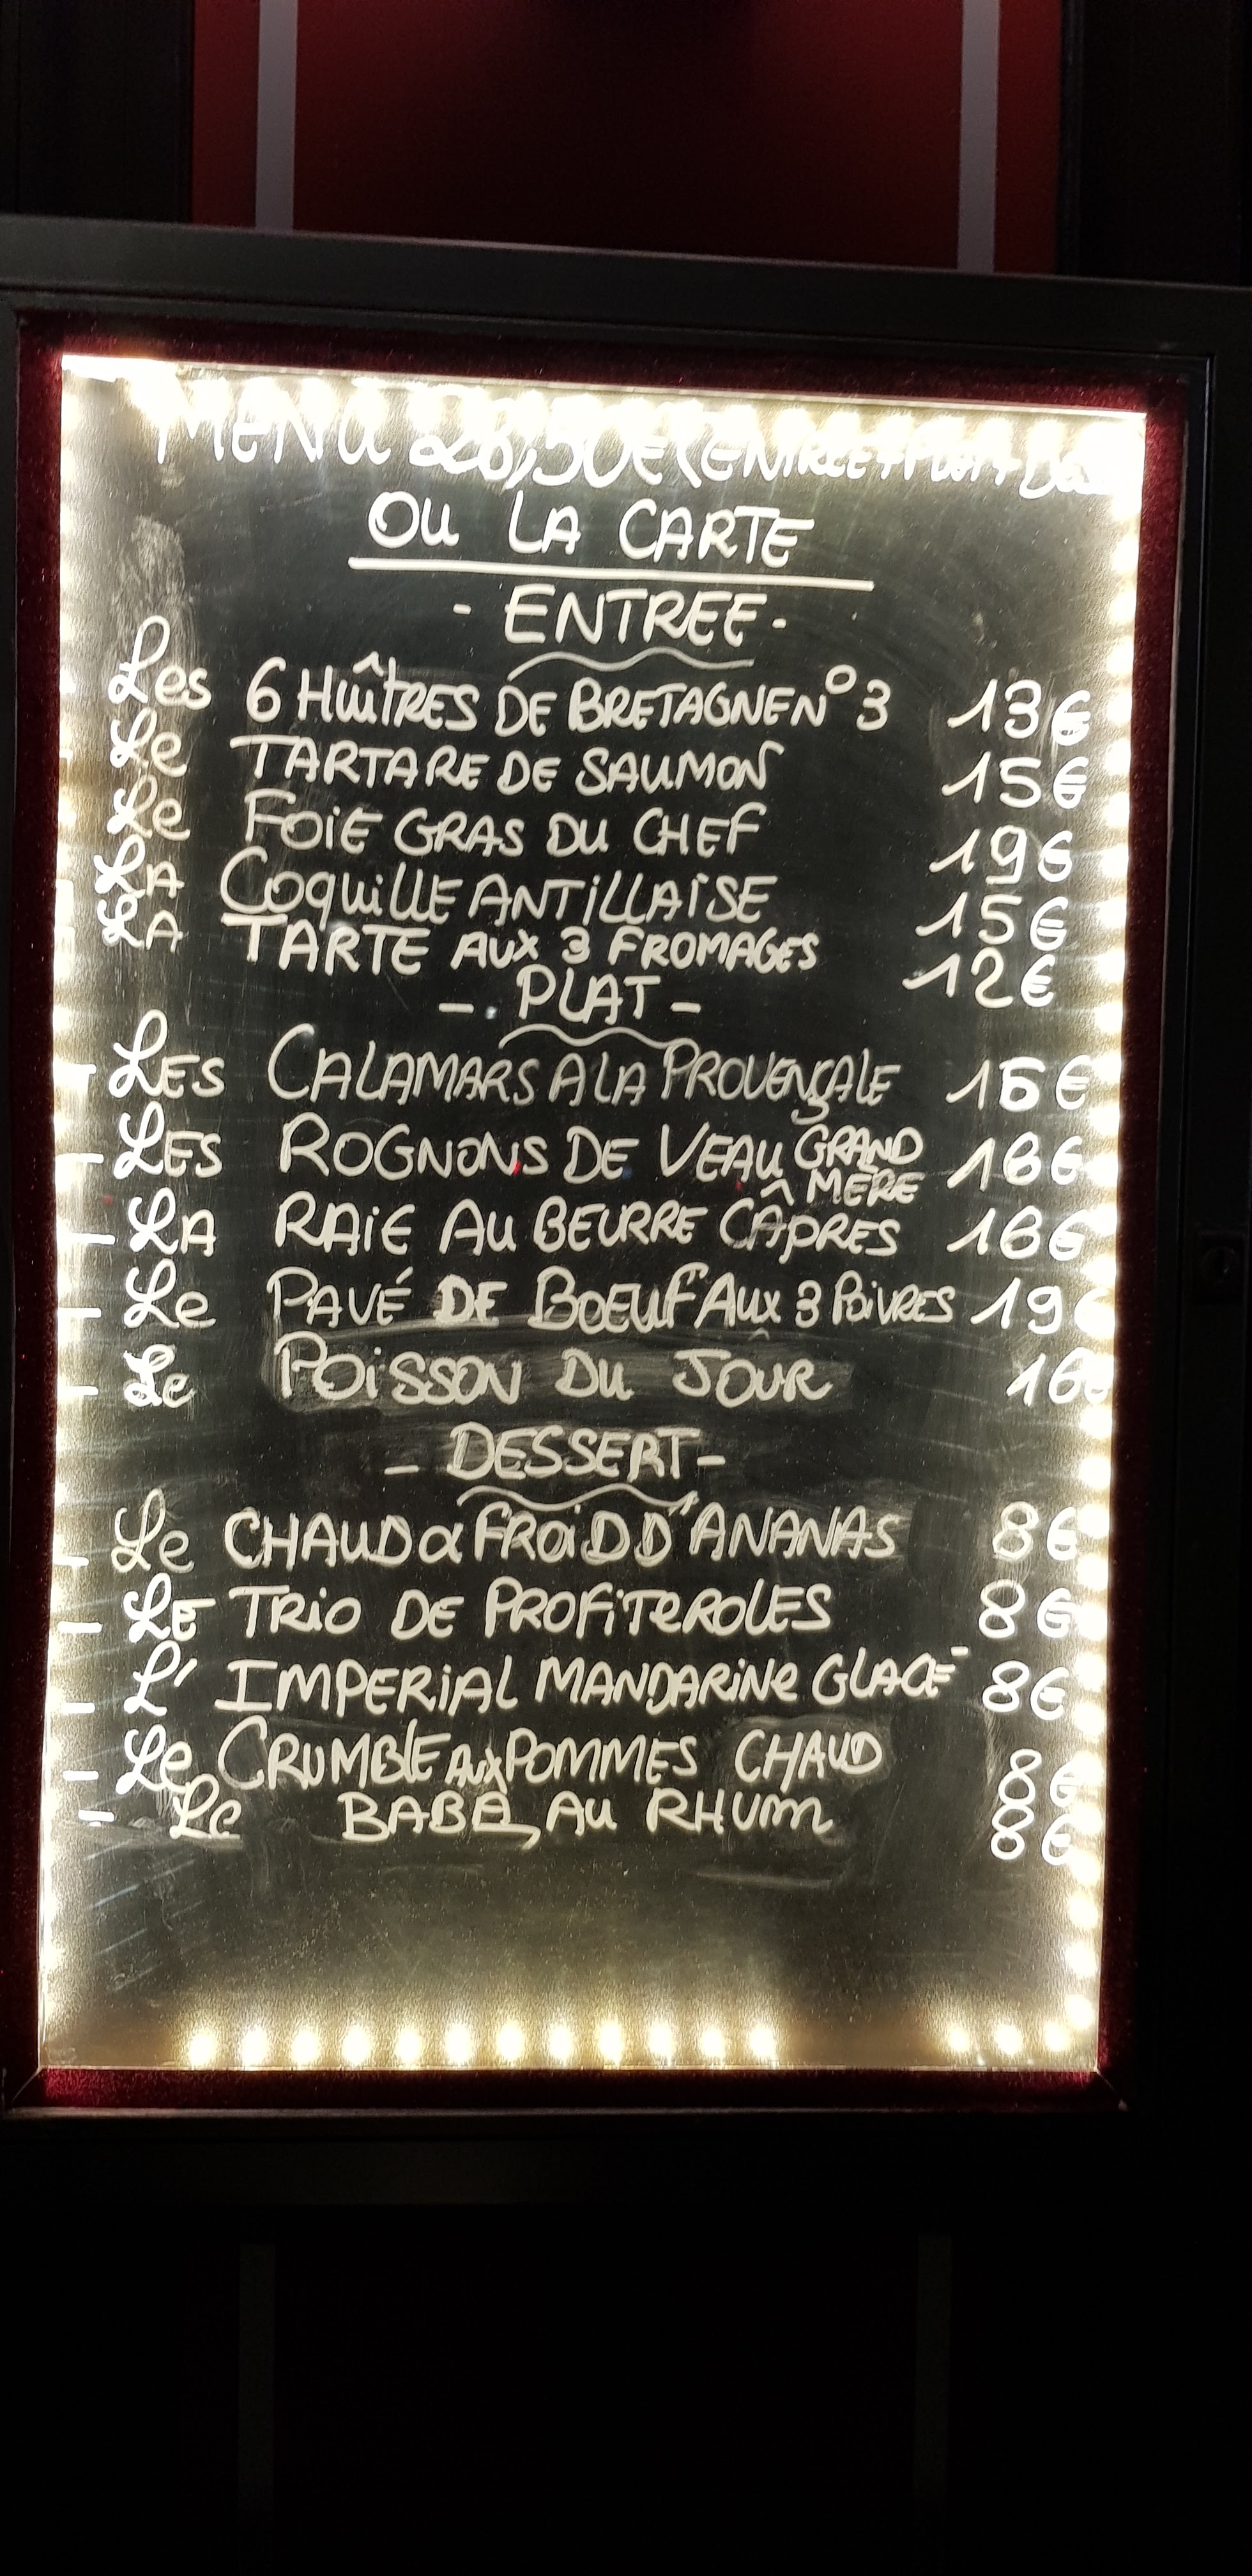 MENU 28,50€ (ENTREE + PLAT +
OU LA CARTE
- ENTREE -
Les 6 HUîTRES DE BRETAGNE N° 3 13€
Le TARTARE DE SAUMON 15€
Le FOIE GRAS DU CHEF 19€
LA COQUILLE ANTILLAISE 15€
LA TARTE AUX 3 FROMAGES 12€
- PLAT -
- LES CALAMARS A LA PROVENÇALE 16€
- LES ROGNONS DE VEAU GRAND MERE 16€
- LA RAIE AU BEURRE CÂPRES 16€
- Le PAVÉ DE BOEUF AUX 3 POIVRES 19€
- Le POISSON DU JOUR 16€
- DESSERT -
- Le CHAUD & FROID D'ANANAS 8€
- LE TRIO DE PROFITEROLES 8€
- L' IMPERIAL MANDARINE GLACÉ 8€
- Le CRUMBLE AUX POMMES CHAUD 8€
- Le BABA AU RHUM 8€